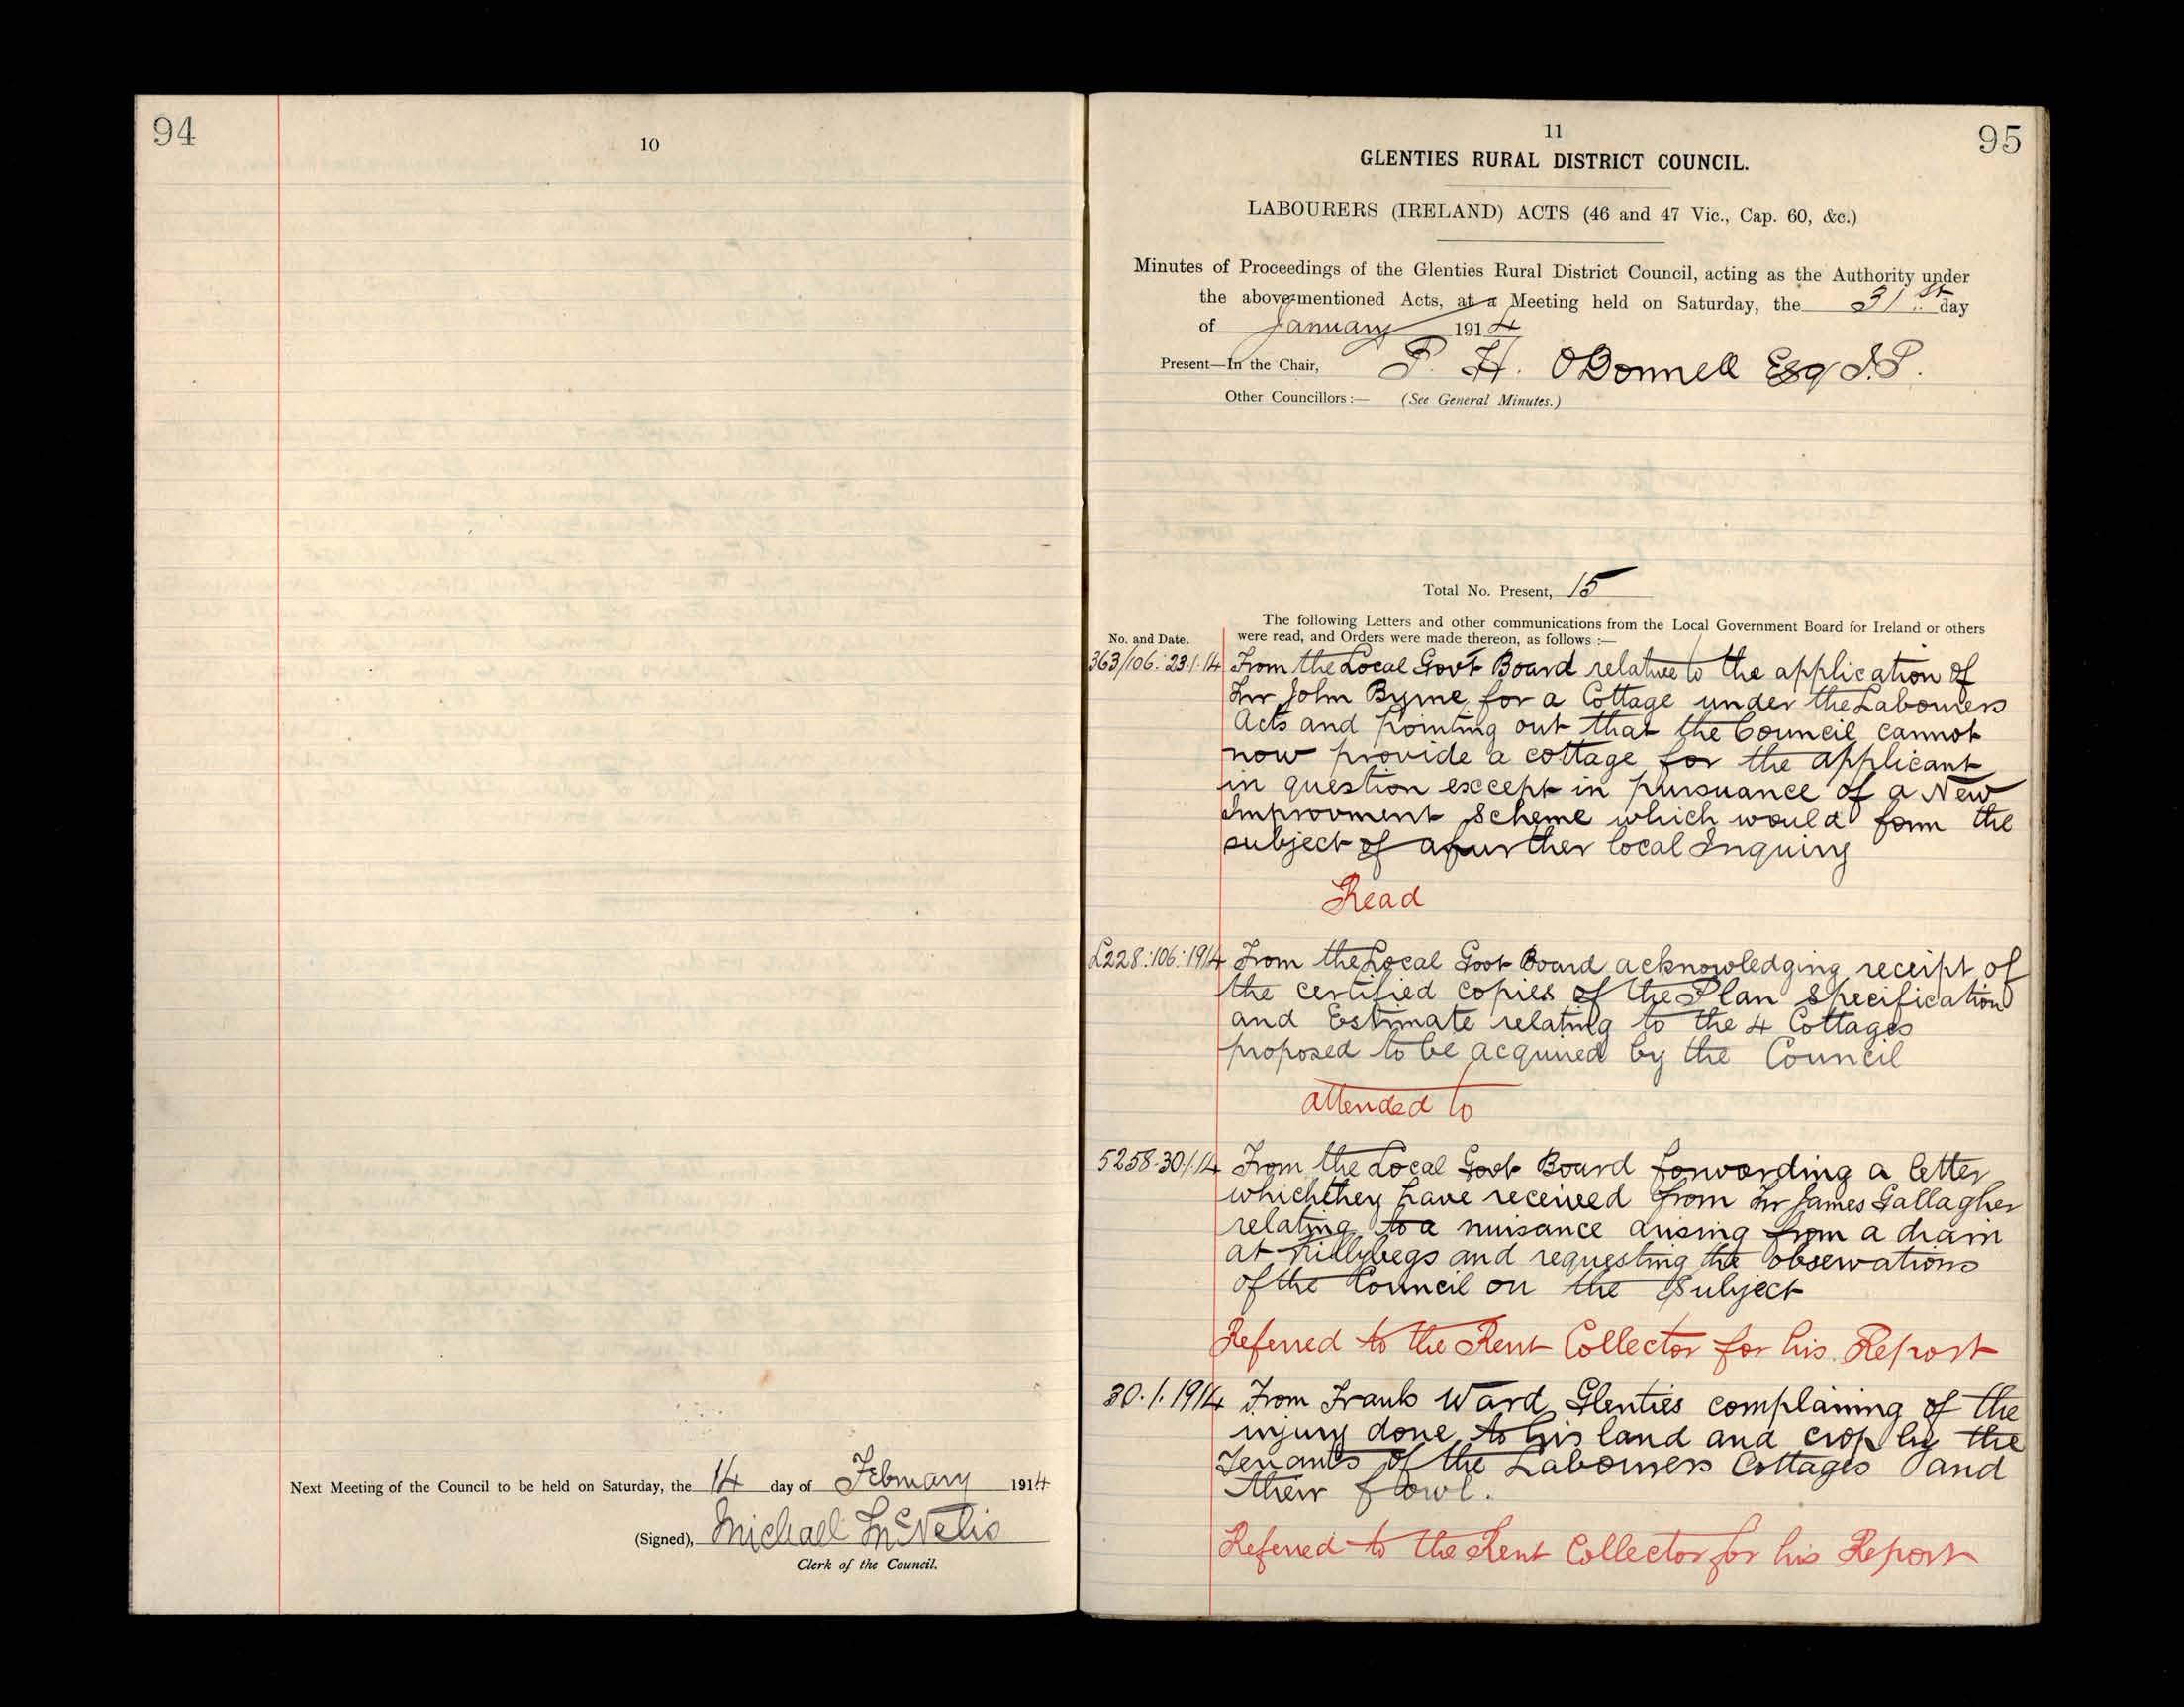 94
10
Next Meeting of the Council to be held on Saturday, the 14 day of February 1914
(Signed), Michael McNelis
Clerk of the Council.
11
95
GLENTIES RURAL DISTRICT COUNCIL.
LABOURERS (IRELAND) ACTS (46 and 47 Vic., Cap. 60, &c.)
Minutes of Proceedings of the Glenties Rural District Council, acting as the Authority under
the above-mentioned Acts, at a Meeting held on Saturday, the 31st day
of January 1914
Present—In the Chair, P. H. O'Donnell Esq J.P.
Other Councillors:— (See General Minutes.)
Total No. Present, 15
The following Letters and other communications from the Local Government Board for Ireland or others
No. and Date. were read, and Orders were made thereon, as follows :—
363/106:23.1.14 From the Local Govt Board relative to the application of
Mr John Byrne for a Cottage under the Labourers
Acts and pointing out that the Council cannot
now provide a cottage for the applicant
in question except in pursuance of a New
Improvment Scheme which would form the
subject of a further local Inquiry
Read
L228:106:1914 From the Local Govt Board acknowledging receipt of
the certified copies of the Plan Specification
and Estimate relating to the 4 Cottages
proposed to be acquired by the Council
attended to
5258.30/1.14 From the Local Govt Board forwarding a letter
which they have received from Mr James Gallagher
relating to a nuisance arising from a drain
at Killybegs and requesting the observations
of the Council on the Subject
Referred to the Rent Collector for his Report
30.1.1914 From Frank Ward Glenties complaining of the
injury done to his land and crop by the
Tenants of the Labourers Cottages and
their fowl.
Referred to the Rent Collector for his Report